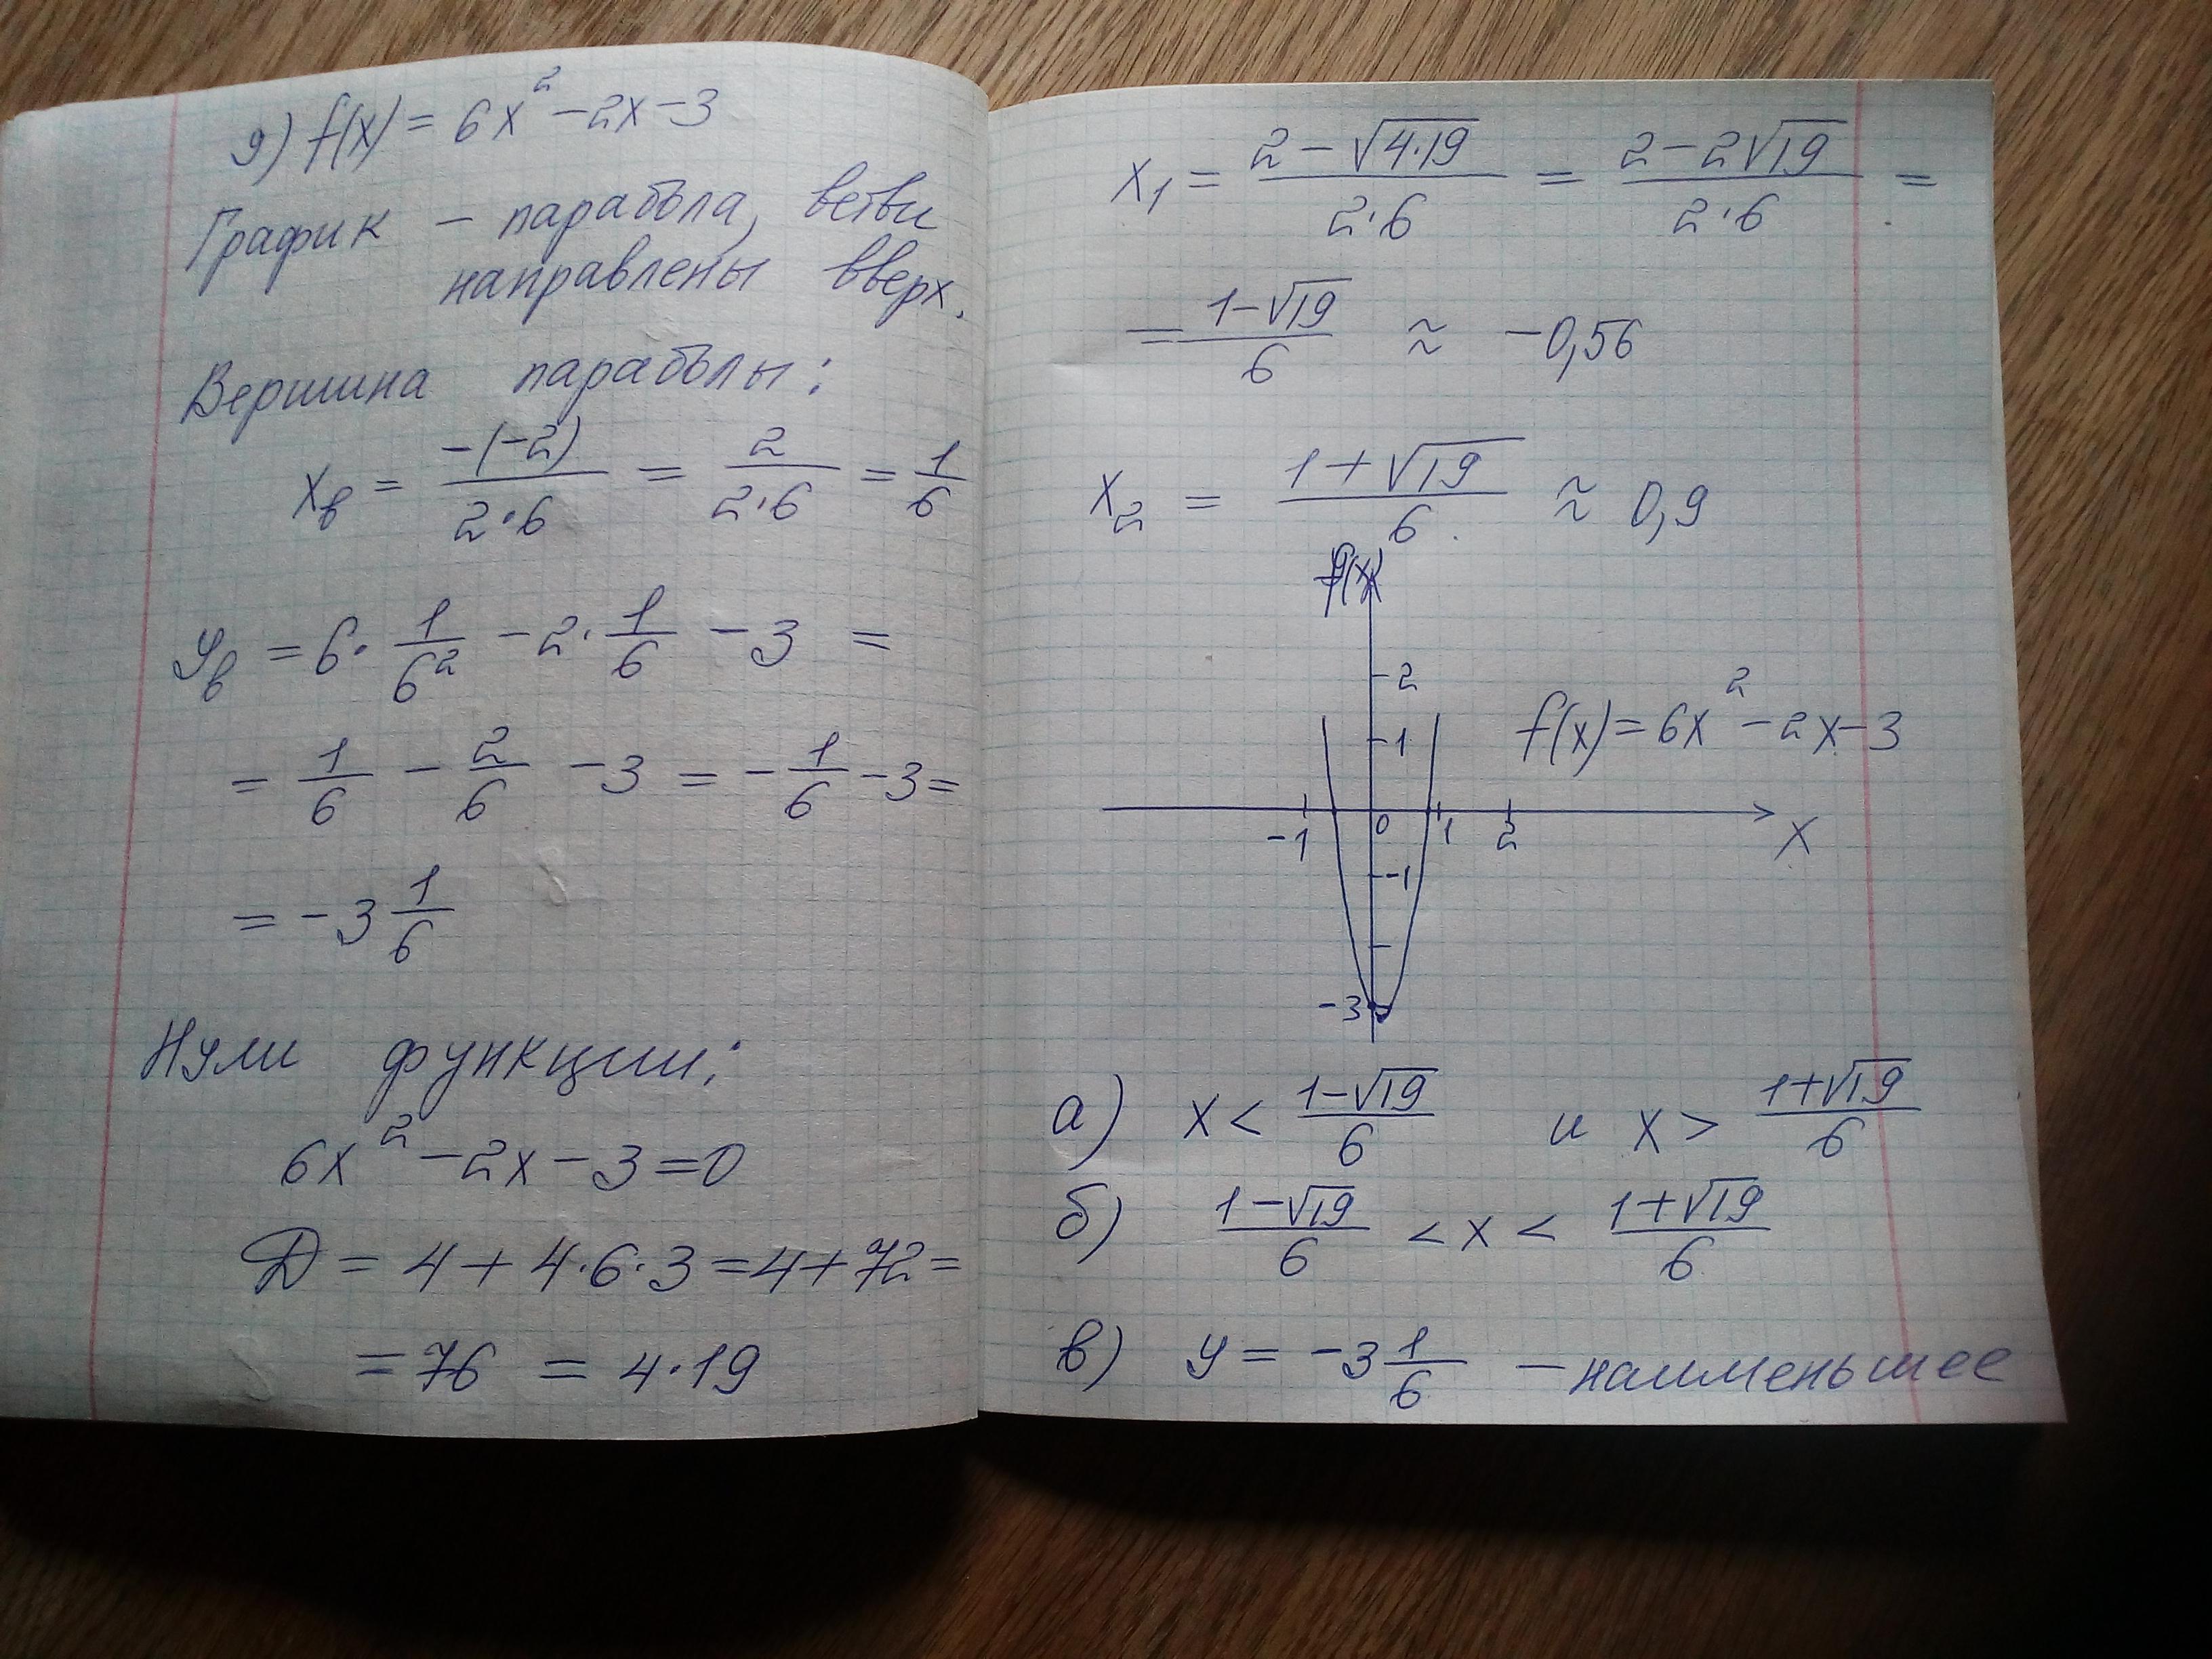 9) f(x) = 6x² - 2x - 3
График - парабола, ветви
направлены вверх.
Вершина параболы:
xв = -(-2)/(2·6) = 2/(2·6) = 1/6
yв = 6 · 1/6² - 2 · 1/6 - 3 =
= 1/6 - 2/6 - 3 = -1/6 - 3 =
= -3 1/6
Нули функции:
6x² - 2x - 3 = 0
D = 4 + 4·6·3 = 4 + 72 =
= 76 = 4·19
x₁ = (2 - √(4·19))/(2·6) = (2 - 2√19)/(2·6) =
= (1 - √19)/6 ≈ -0,56
x₂ = (1 + √19)/6 ≈ 0,9
f(x)
2
f(x) = 6x² - 2x - 3
1
-1 0 1 2 x
-1
-3
а) x < (1 - √19)/6 и x > (1 + √19)/6
б) (1 - √19)/6 < x < (1 + √19)/6
в) y = -3 1/6 - наименьшее